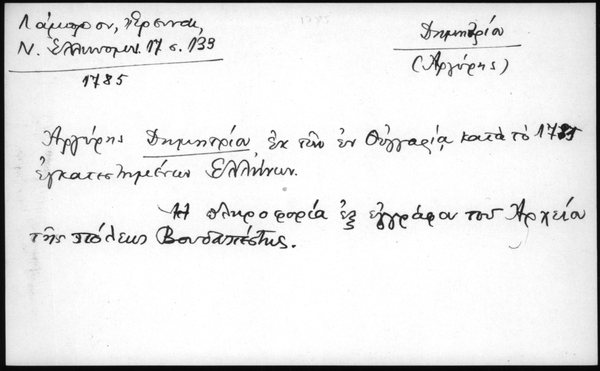 Λάμπρου, Ἔρευναι,
Ν. Ἑλληνομν. 17 σ. 139
1785
Δημητρίου
(Ἀργύρης)
Ἀργύρης Δημητρίου, ἐκ τῶν ἐν Οὑγγαρίᾳ κατὰ τὸ 1785
ἐγκατεστημένων Ἑλλήνων.
Ἡ πληροφορία ἐξ ἐγγράφου τοῦ Ἀρχείου
τῆς πόλεως Βουδαπέστης.